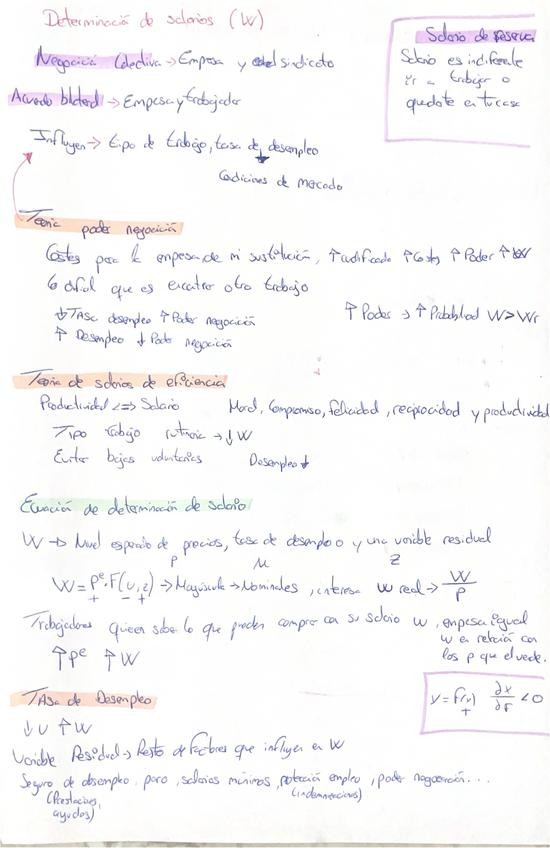 Determinació de salarios (W)
Salario de reserva
Salario es indiferente
ir a trabajar o
quedarte en tu casa
Negociació Colectiva → Empresa y sindicato
Acuerdo bilateral → Empresa y trabajador
Influyen → tipo de trabajo, tasa de desempleo
Condiciones de mercado
Teoria poder negociación
Costes para la empresa de mi sustitución, ↑cualificado ↑Costes ↑Poder ↑W
difícil que es encontrar otro trabajo
↓ Tasa desempleo ↑ Poder negociació
↑ Desempleo ↓ Poder Negociación
↑ Poder → ↑ Probabilidad W > Wr
Teoria de salarios de eficiencia
Productividad <=> Salario Moral, Compromiso, felicidad, reciprocidad y productividad
Tipo trabajo rutinario → ↓ W
Evitar bajas voluntarias Desempleo ↓
Ecuación de determinación de salario
W → Nivel esperado de precios, tasa de desempleo y una variable residual
P μ Z
W = Pe · F(u, z) → Mayúscula → Nominales, interesa W real → W/P
+ - +
Trabajadores quieren saber lo que pueden comprar con su salario W, empresa igual
W en relación con
los p que el vende.
↑Pe ↑W
Y = F(x) ∂x/∂F < 0
+
Tasa de Desempleo
↓ U ↑ W
Variable Residual → Resto de factores que influyen en W
Seguro de desempleo, paro, salarios mínimos, protección empleo, poder negociación...
(Prestaciones,
ayudas)
(indemnizaciones)